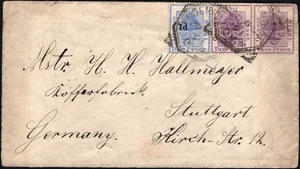 1d
Two Pence Two Pence
Mstr. H. H. Hallmeyer
Kofferfabrik
Stuttgart
Germany. Kirch-Str. 12.